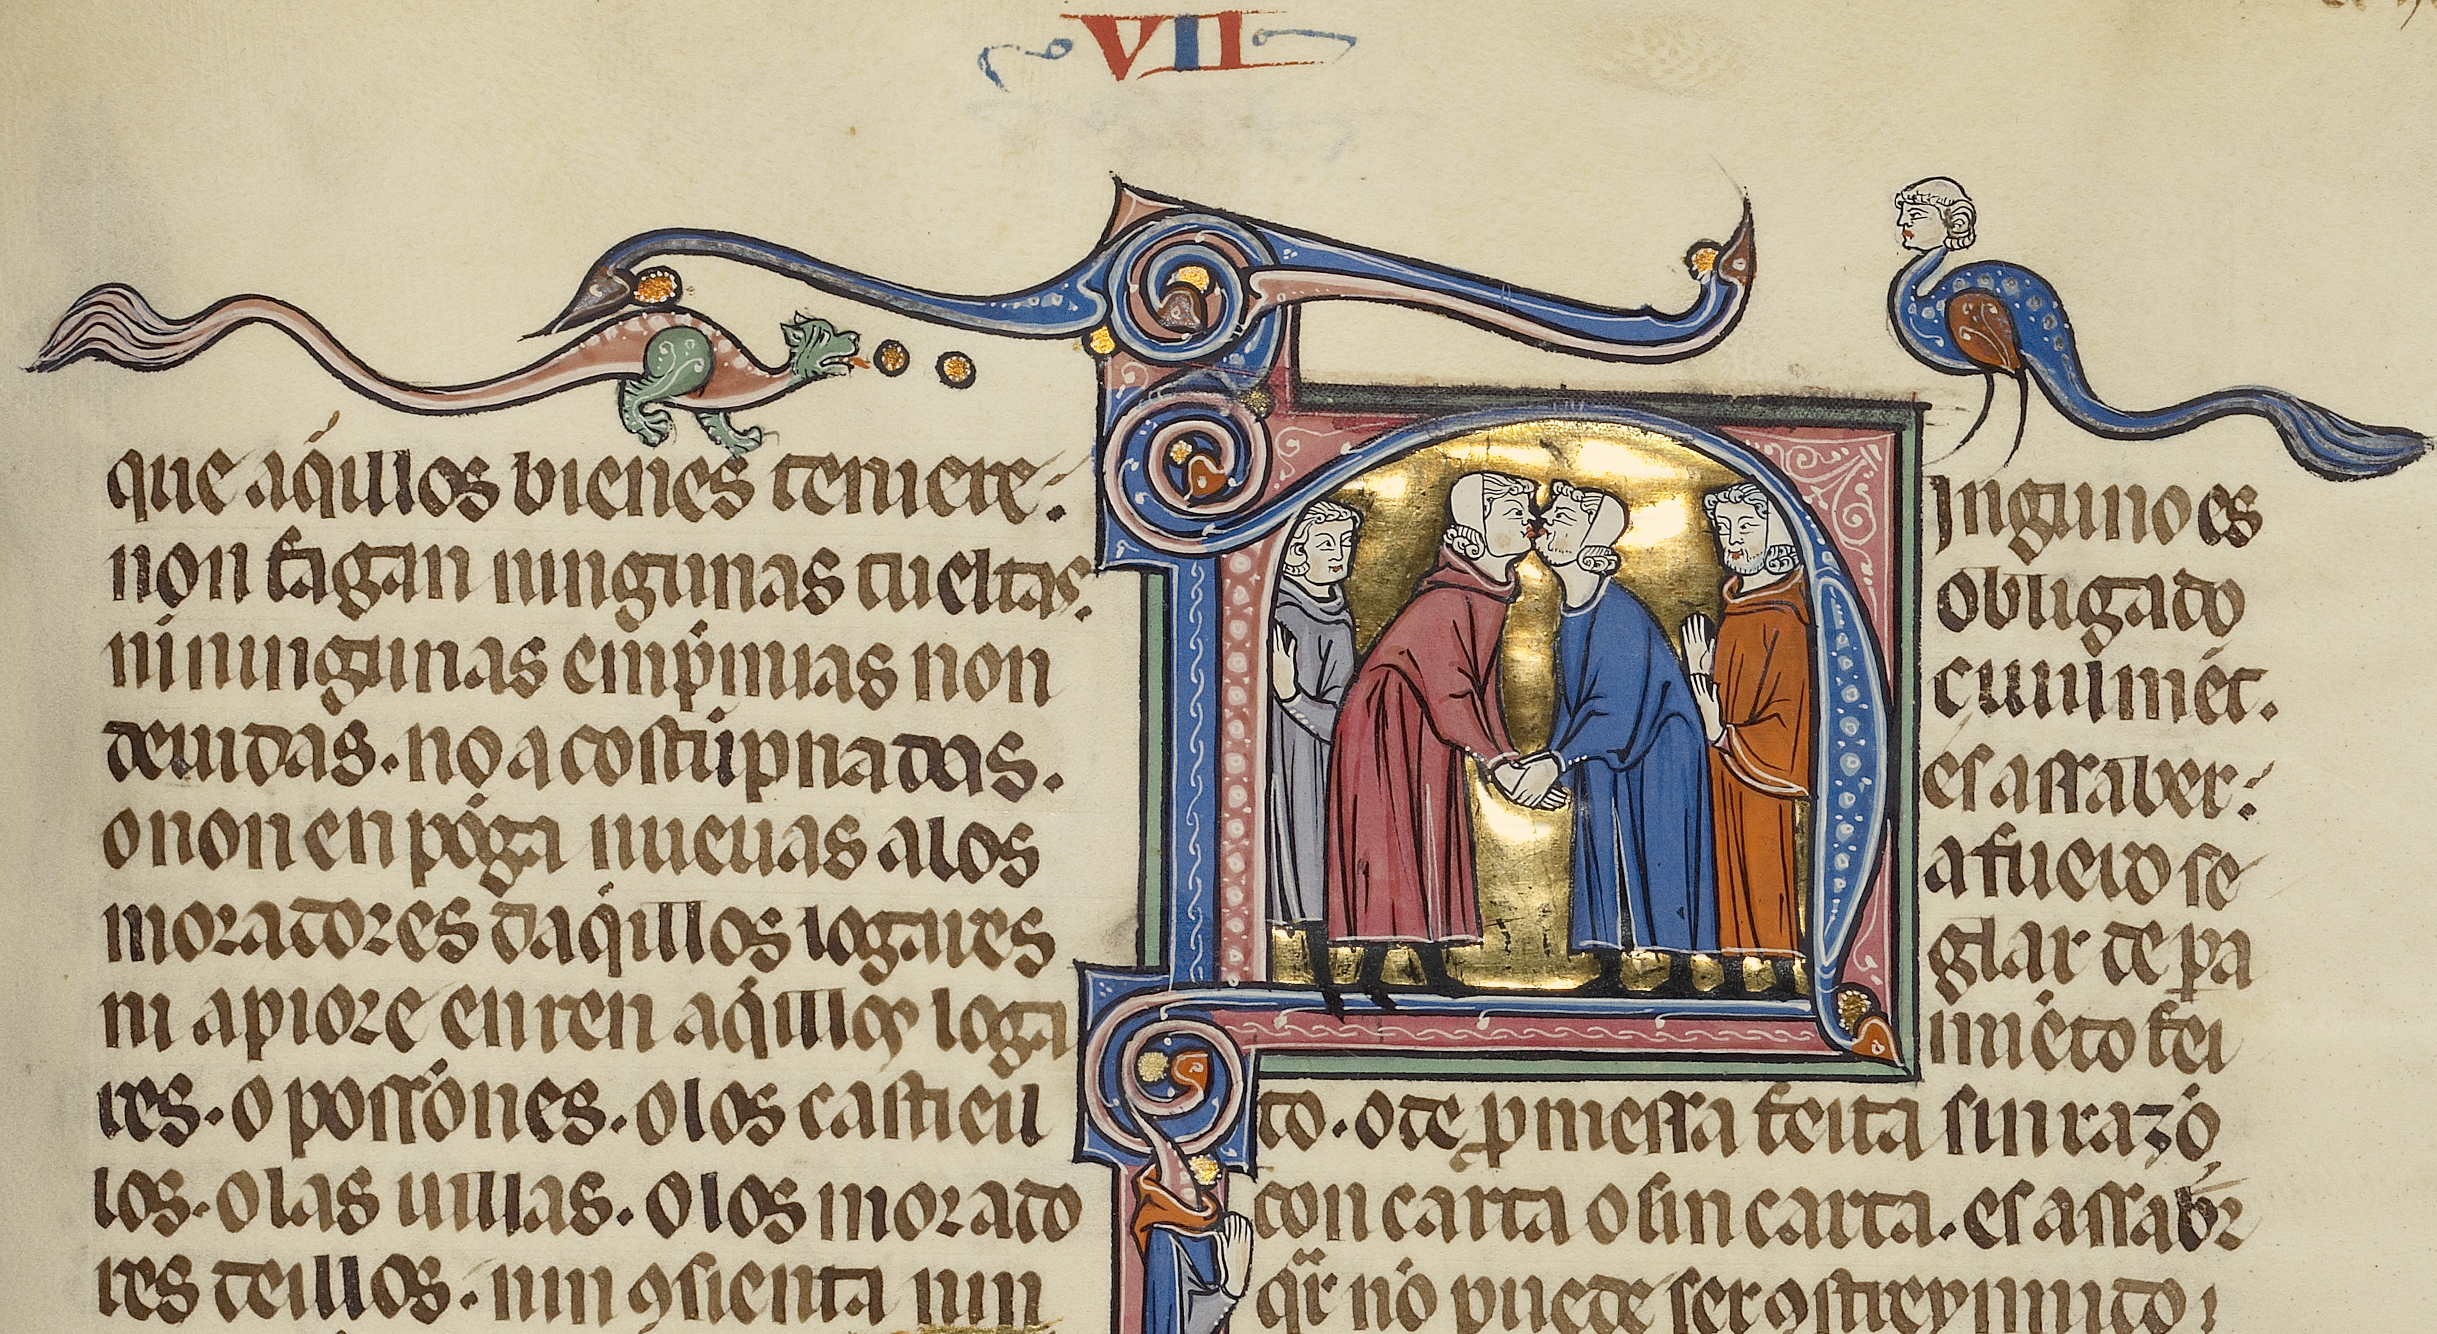 VII
que aq́illos bienes teniere:
non fagan ningunas cueltas.
ni ningunas emp̃miuas non
deuidas. no acostũpnadas.
o non en póga nueuas alos
moradores daq́illos logares
ni apiore en ren aq́illos loga
res. o possiões. o los castiell
los. o las uillas. o los morado
res deillos. nin ꝯsienta nin
Ninguno es
obligado
ciuilmẽt.
es assaber:
a fuero se
glar de pa
miẽto fei
to. o de ꝓmessa feita sin razõ
con carta o sin carta. es assab̃r
q̃ nõ puede ser ꝯstreynnido